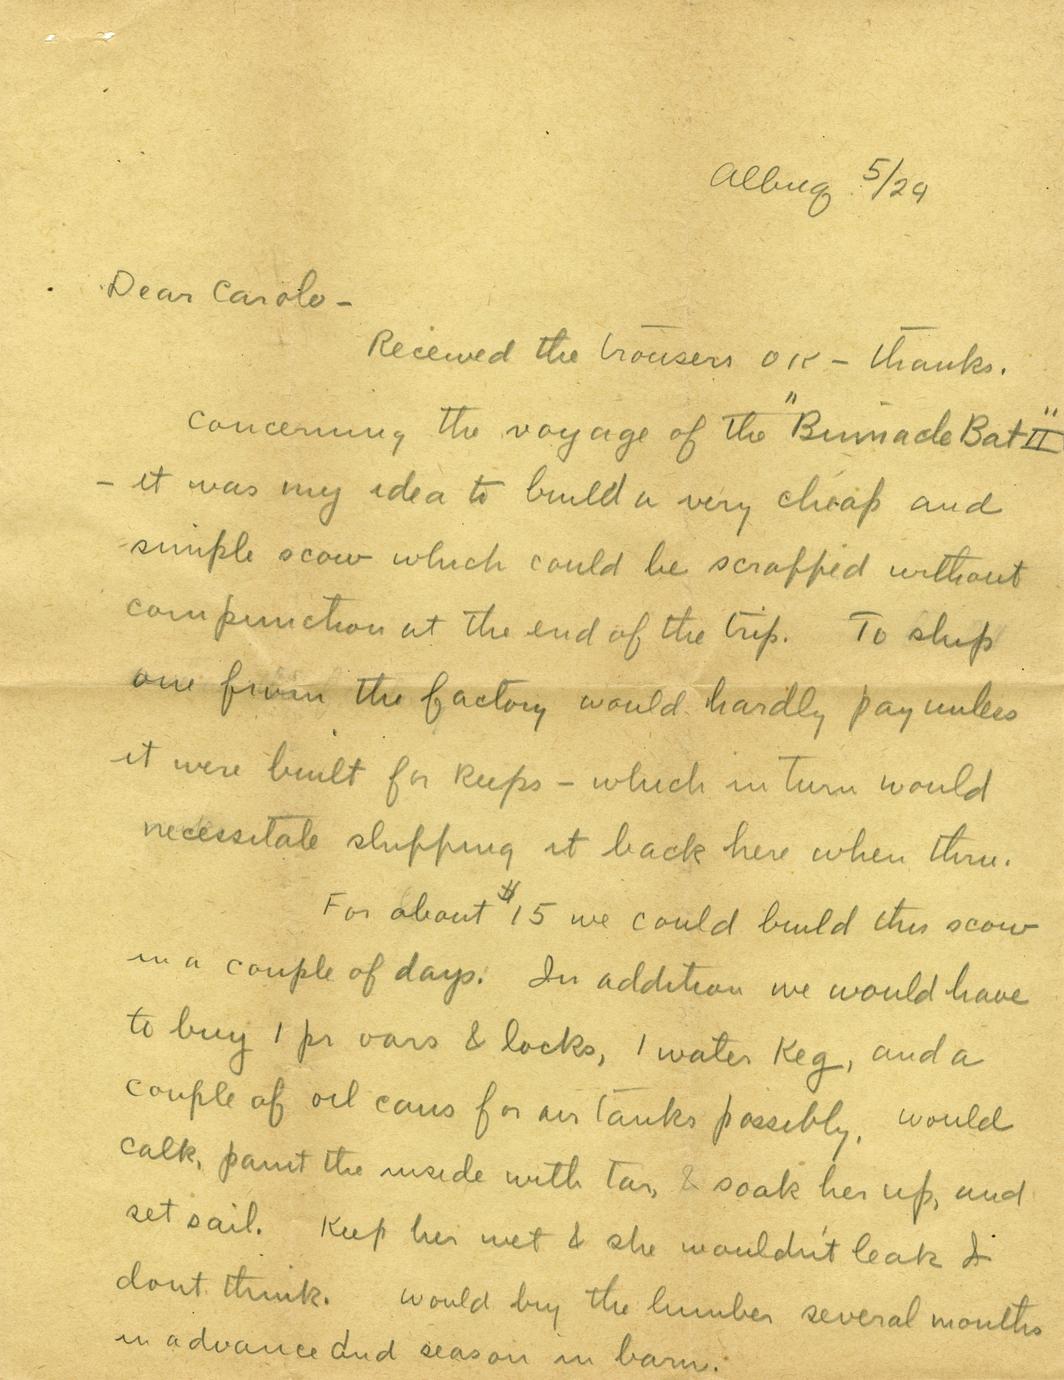 Albuq 5/29
Dear Carolo -
Received the trousers OK - thanks.
Concerning the voyage of the "Binnacle Bat II"
- it was my idea to build a very cheap and
simple scow which could be scrapped without
compunction at the end of the trip. To ship
one from the factory would hardly pay unless
it were built for keeps - which in turn would
necessitate shipping it back here when thru.
For about $15 we could build this scow
in a couple of days. In addition we would have
to buy 1 pr oars & locks, 1 water keg, and a
couple of oil cans for air tanks possibly, would
calk, paint the inside with tar, & soak her up, and
set sail. Keep her wet & she wouldn't leak I
dont think. would buy the lumber several months
in advance and season in barn.